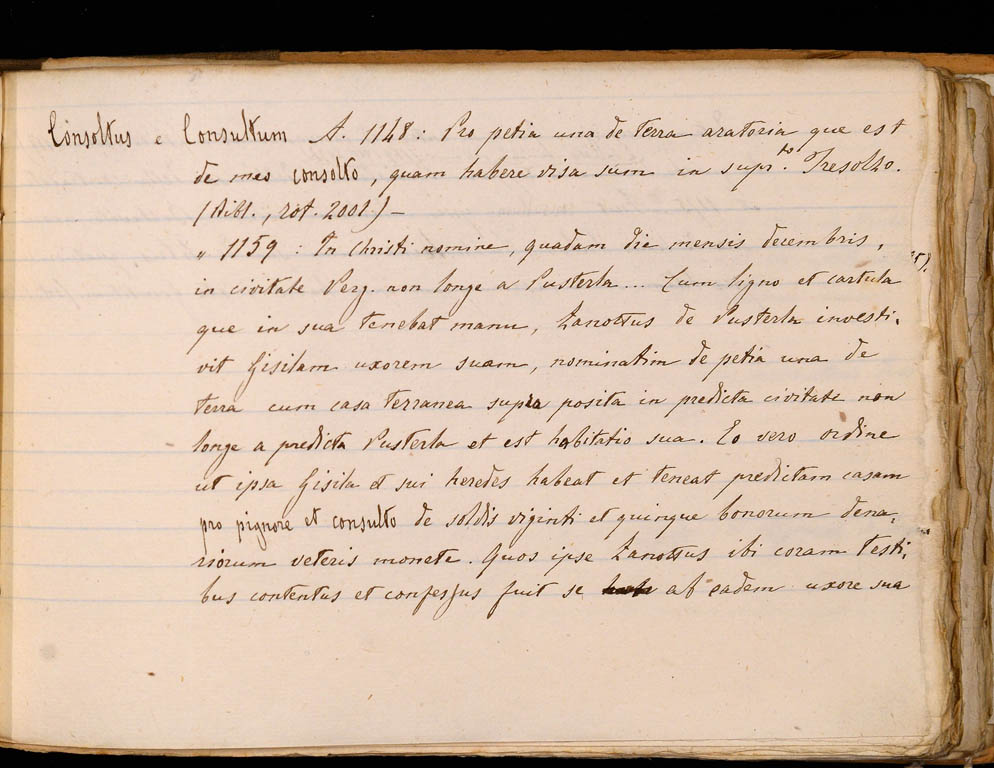 Consoltus e Consultum A. 1148: Pro petia una de terra aratoria que est
de meo consolto, quam habere visa sum in supr.to Tresolzo.
(Bibl., rot. 2001.) —
„ 1159: In Christi nomine, quadam die mensis decembris,
in civitate Perg. non longe a Pusterla... Cum ligno et cartula
que in sua tenebat manu, Lanottus de Pusterla investi-
vit Gisilam uxorem suam, nominatim de petia una de
terra cum casa terranea supra posita in predicta civitate non
longe a predicta Pusterla et est habitatio sua. Eo vero ordine
ut ipsa Gisila et sui heredes habeat et teneat predictam casam
pro pignore et consulto de soldis viginti et quinque bonorum dena-
riorum veteris monete. Quos ipse Lanottus ibi coram testi-
bus contentus et confessus fuit se ab eadem uxore sua